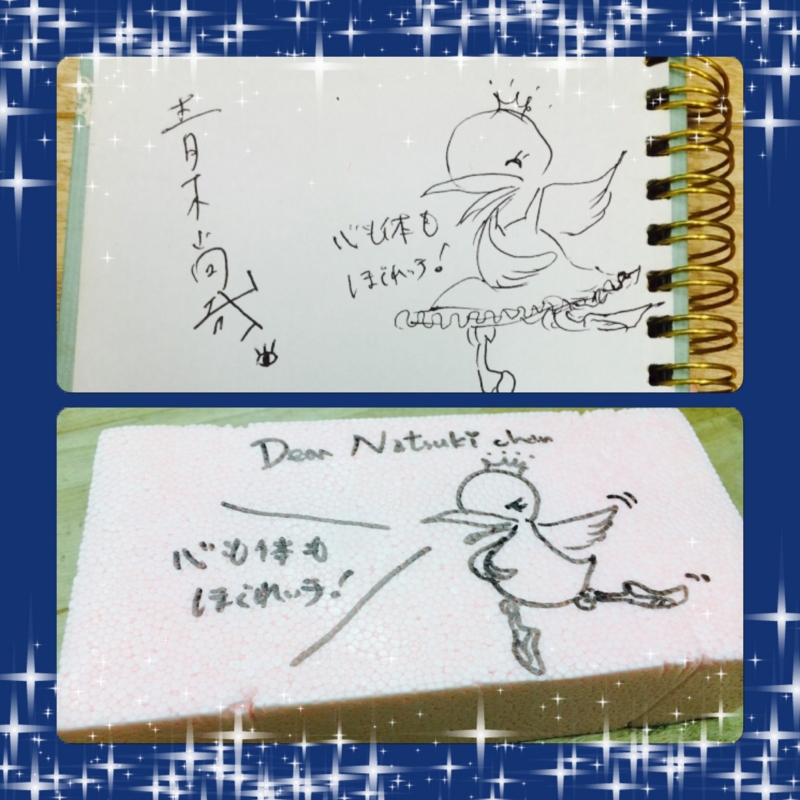 青木尚哉
心も体も
ほぐれっ子!
Dear Natsuki chan
心も体も
ほぐれっ子!